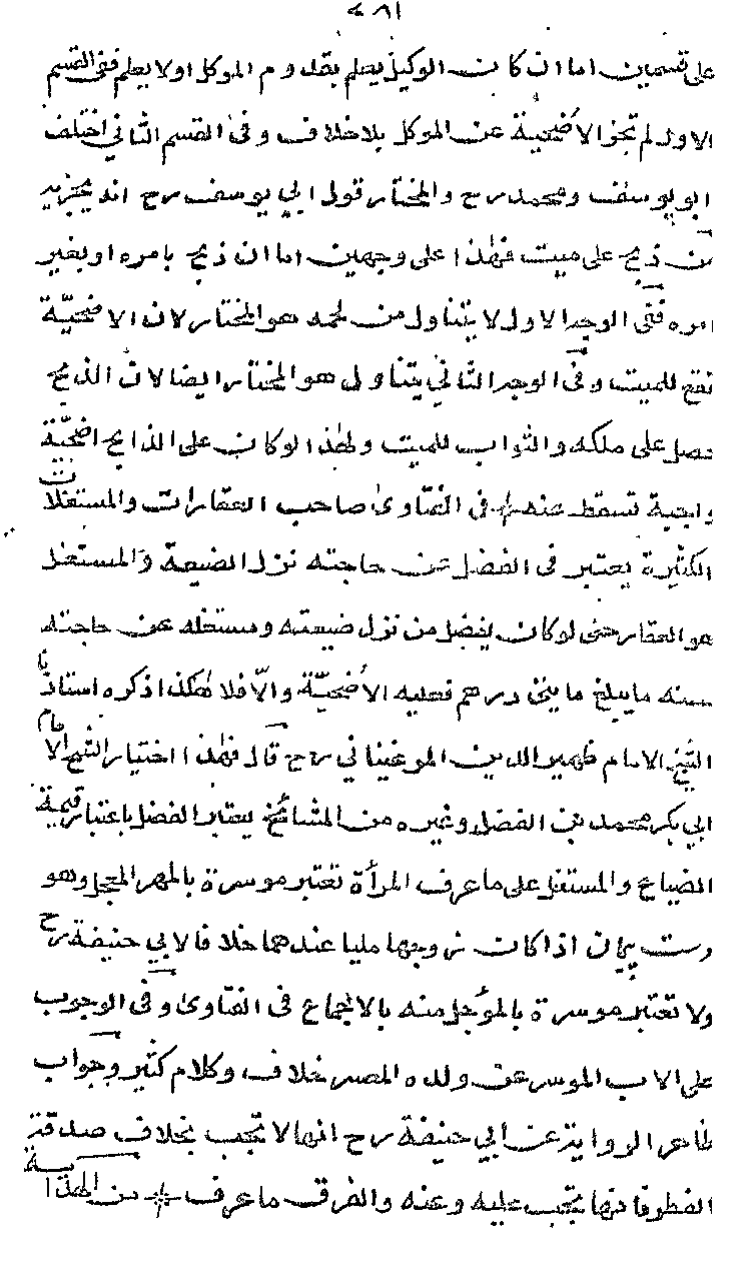 ٤٨١
على قسمين اما ان كان الوكيل يعلم بقدوم الموكل اولا يعلم ففي القسم
الاول لم تجز الأضحية عن الموكل بلا خلاف وفي القسم الثاني اختلف
ابو يوسف ومحمد رح والمختار قول ابي يوسف رح انه يجزيه
من ذبح على ميت فهذا على وجهين اما ان ذبح بامره او بغير
امره ففي الوجه الاول لا يتناول من لحمه هو المختار لان الاضحيّة
تقع للميت وفي الوجه الثاني يتناول هو المختار ايضا لان الذبح
حصل على ملكه والثواب للميت ولهذا لو كان على الذابح اضحيّة
واجبة تسقط عنه في الفتاوى صاحب العقارات والمستغلات
الكثيرة يعتبر في الفضل عن حاجته نزل الضيعة والمستغل
هو العقار حتى لو كان يفضل من نزل ضيعته ومستغله عن حاجته
سنه ما يبلغ مايتي درهم فعليه الأضحيّة والّا فلا هكذا ذكره استاذنا
الشيخ الامام ظهير الدين المرغيناني رح قال فهذا اختيار الشيخ الامام
ابي بكر محمد بن الفضل وغيره من المشائخ يعتبر الفضل باعتبار قيمة
الضياع والمستغل على ما عرف المرأة تعتبر موسرة بالمهر المعجل وهو
دست پيمان اذا كان زوجها مليا عندهما خلافا لابي حنيفة رح
ولا تعتبر موسرة بالمؤجل منه بالاجماع في الفتاوى وفي الوجوب
على الاب الموسر عن ولده المصر خلاف وكلام كثير وجواب
ظاهر الرواية عن ابي حنيفة رح انها لا تجب بخلاف صدقة
الفطر فانها تجب عليه وعنه والفرق ما عرف من الهداية